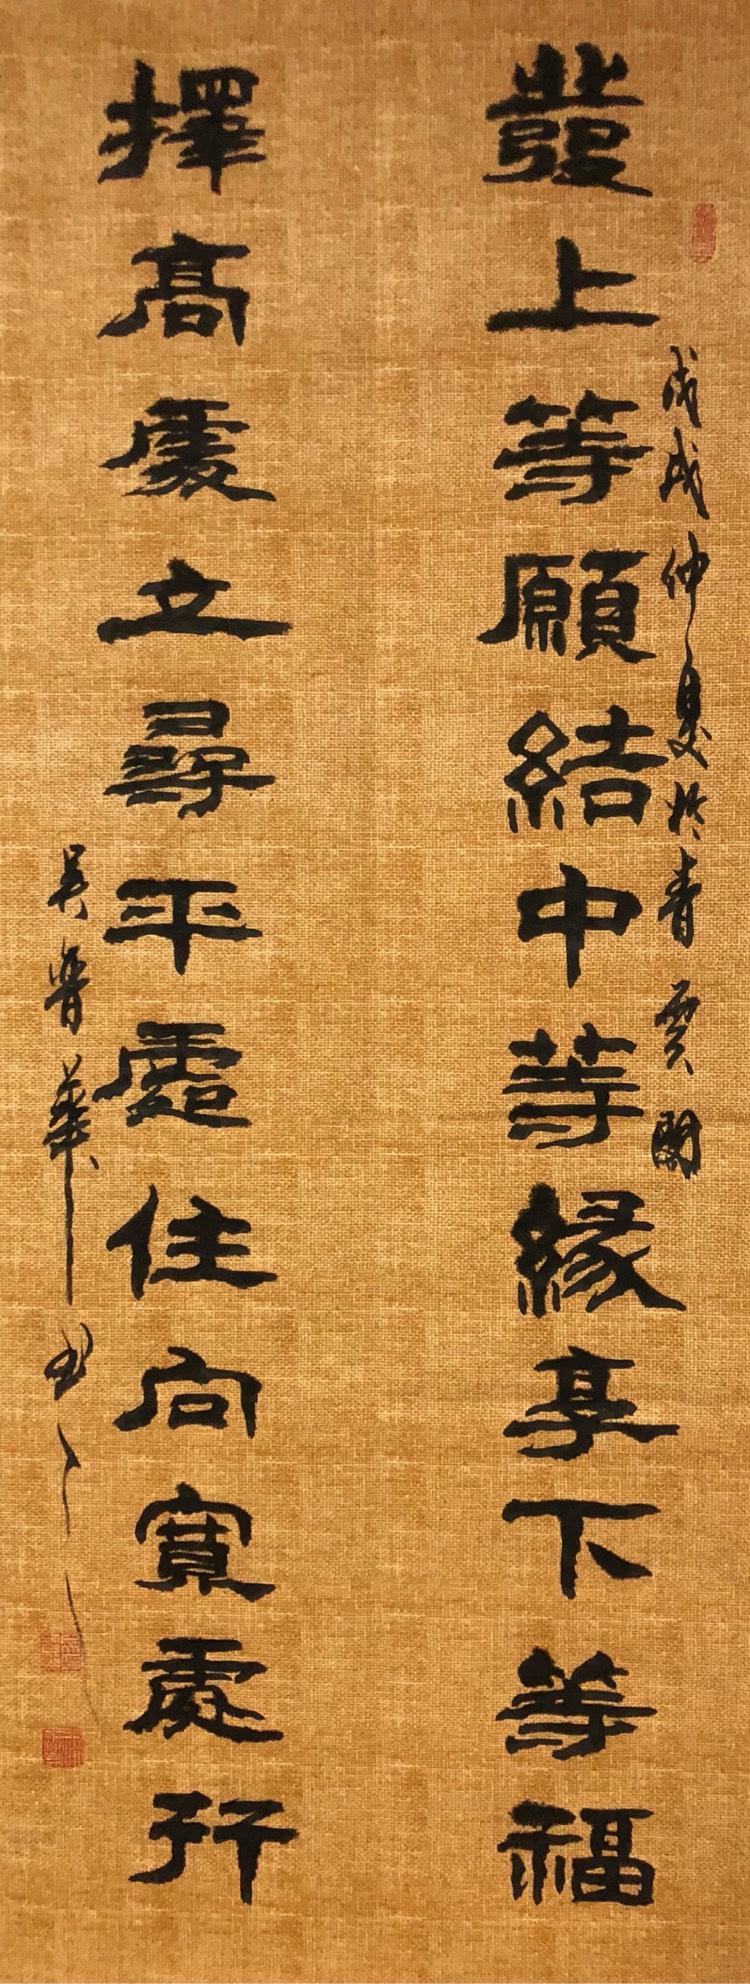 發上等願結中等緣享下等福
戊戌仲夏於青雲閣
擇高處立尋平處住向寬處行
吳晉華書